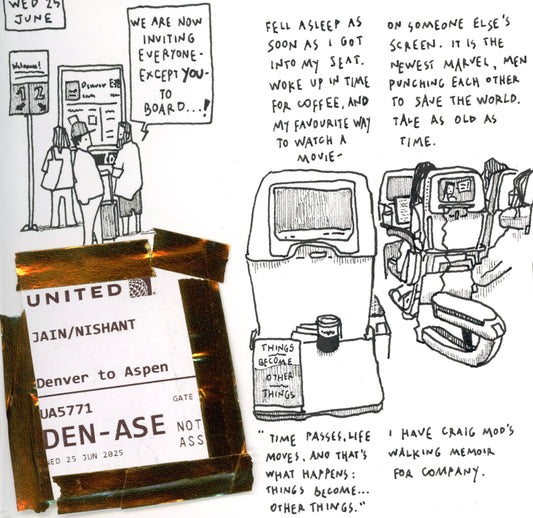 WED 25
JUNE
WE ARE NOW
INVITING
EVERYONE-
EXCEPT YOU- TO
BOARD...!
Welcome!
1 2
Denver
FELL ASLEEP AS
SOON AS I GOT
INTO MY SEAT.
WOKE UP IN TIME
FOR COFFEE, AND
MY FAVOURITE WAY
TO WATCH A
MOVIE-
ON SOMEONE ELSE'S
SCREEN. IT IS THE
NEWEST MARVEL, MEN
PUNCHING EACH OTHER
TO SAVE THE WORLD.
TALE AS OLD AS
TIME.
UNITED
JAIN/NISHANT
Denver to Aspen
UA5771
GATE
DEN-ASE
NOT
ASS
WED 25 JUN 2025
THINGS
BECOME
OTHER
THINGS
"TIME PASSES, LIFE
MOVES, AND THAT'S
WHAT HAPPENS:
THINGS BECOME...
OTHER THINGS."
I HAVE CRAIG MOD'S
WALKING MEMOIR
FOR COMPANY.